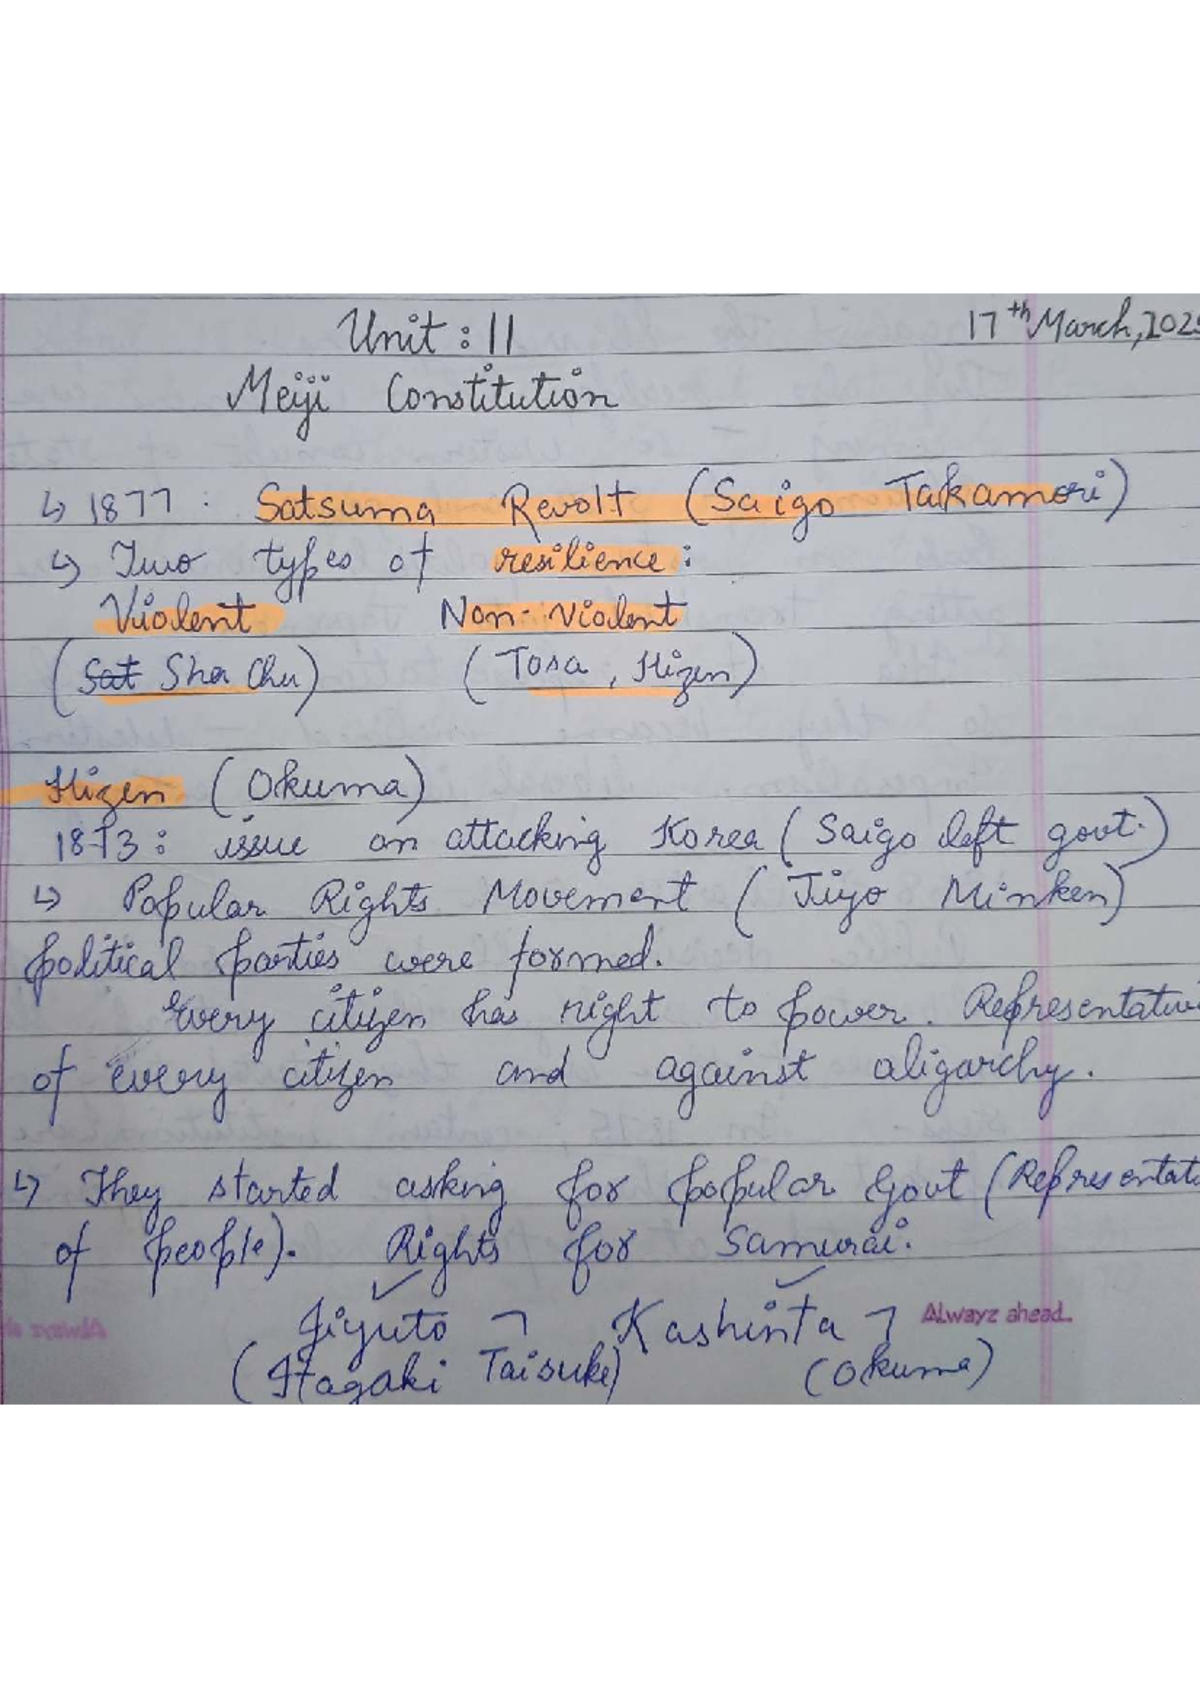 Unit : II
17th March, 202
Meiji Constitution
↳ 1877 : Satsuma Revolt (Saigo Takamori)
↳ Two types of resilience :
Violent Non-violent
(Sat Sha Chu) (Tosa, Hizen)
Hizen (Okuma)
1873 : issue on attacking Korea (Saigo left govt.)
↳ Popular Rights Movement (Jiyo Minken)
political parties were formed.
Every citizen has right to power. Representativ
of every citizen and against aligarchy.
↳ They started asking for popular Govt (Representat
of people). Rights for Samurai.
Jiyuto ¬ Kashinta ¬ Alwayz ahead.
(Itagaki Taisuke) (Okuma)